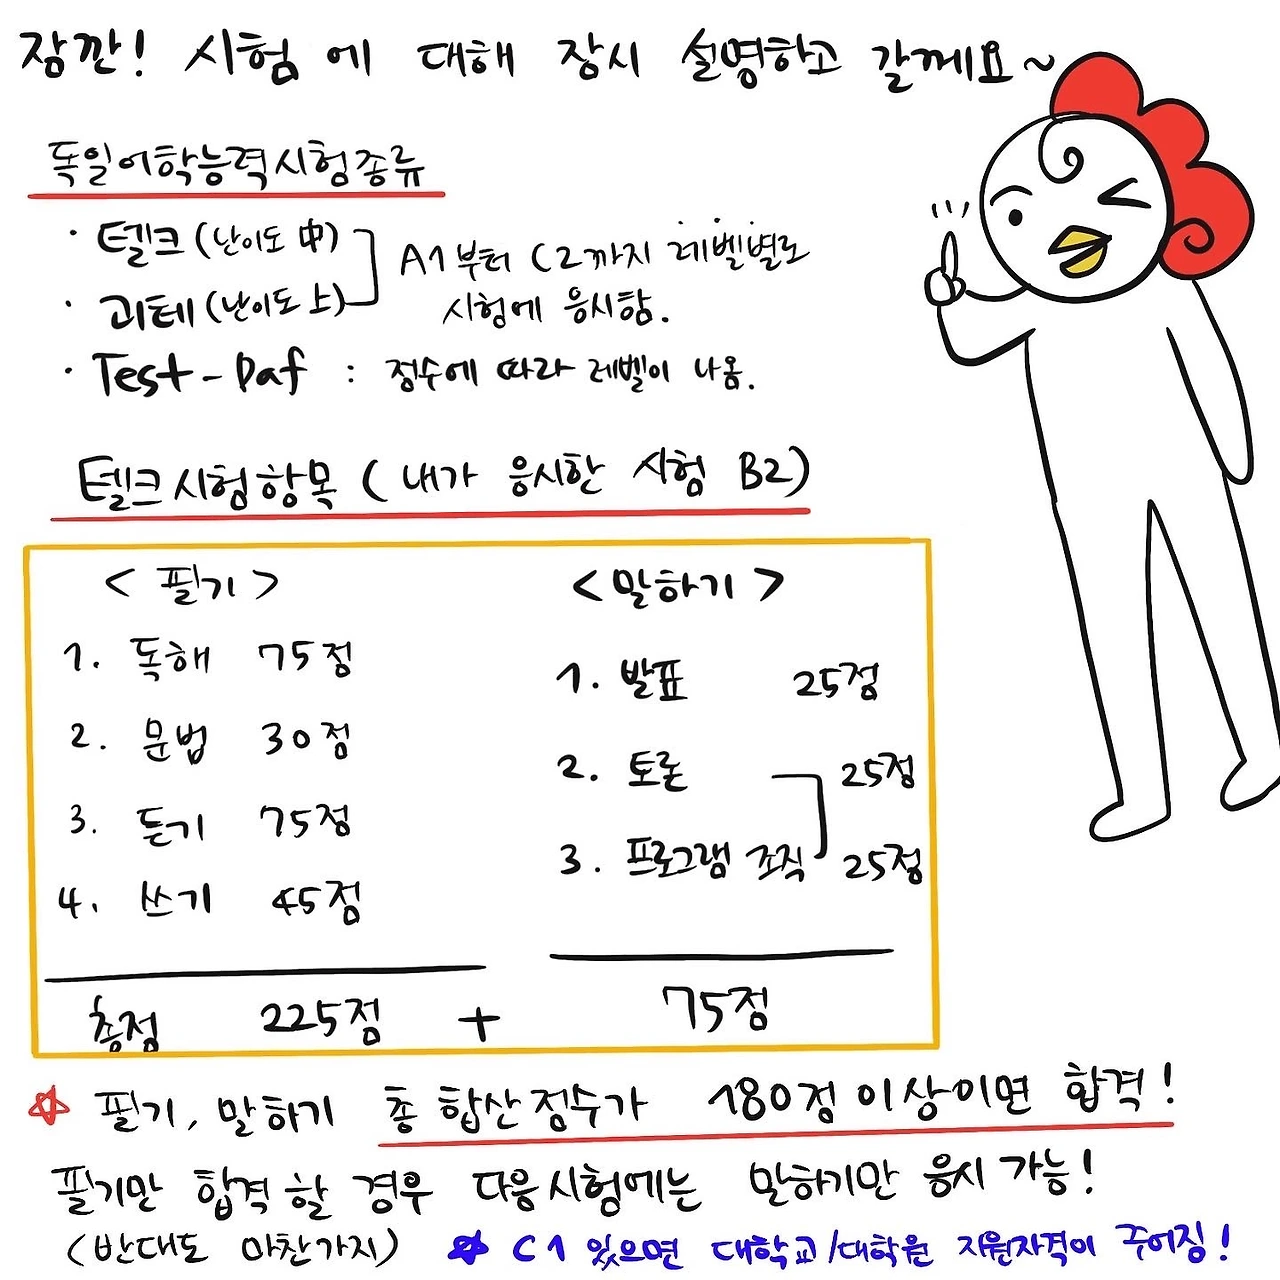 잠깐! 시험에 대해 잠시 설명하고 갈께요~
독일어학능력시험종류
· 텔크 (난이도 中)
· 괴테 (난이도 上)
A1부터 C2까지 레벨별로
시험에 응시함.
· Test-Daf : 점수에 따라 레벨이 나옴.
텔크시험항목 ( 내가 응시한 시험 B2)
< 필기 >
1. 독해 75점
2. 문법 30점
3. 듣기 75점
4. 쓰기 45점
총점 225점 +
< 말하기 >
1. 발표 25점
2. 토론 25점
3. 프로그램 조직 25점
75점
☆ 필기, 말하기 총 합산점수가 180점 이상이면 합격!
필기만 합격 할 경우 다음시험에는 말하기만 응시 가능!
(반대도 마찬가지) ☆ C1 있으면 대학교/대학원 지원자격이 주어짐!